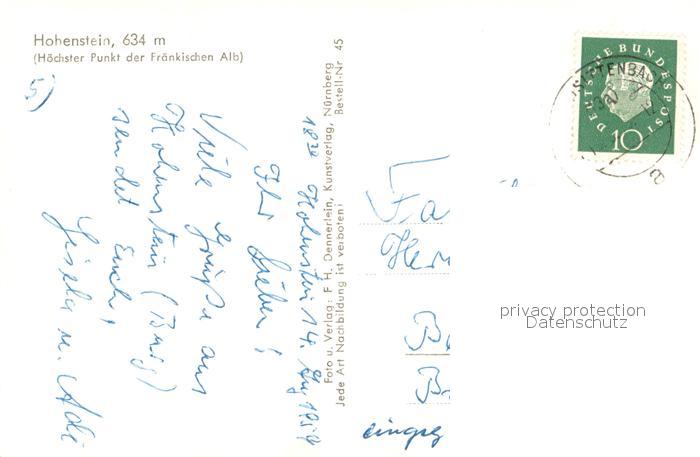 Hohenstein, 634 m
(Höchster Punkt der Fränkischen Alb)
5)
18³⁰ Hohenstein 14. Aug 1959
Ihr Lieben!
Viele Grüße aus
Hohenstein (Burg)
sendet Euch,
Gisela u. Adi
Foto u. Verlag: F H. Dennerlein, Kunstverlag, Nürnberg
Jede Art Nachbildung ist verboten! Bestell-Nr 45
DEUTSCHE BUNDESPOST
10
Fa
Her
B
B
eingeg
privacy protection
Datenschutz